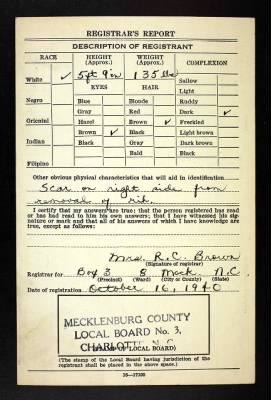 REGISTRAR'S REPORT
DESCRIPTION OF REGISTRANT
RACE HEIGHT (Approx.) WEIGHT (Approx.) COMPLEXION
White ✓ 5 ft 9 in 135 lbs Sallow
Light
EYES HAIR
Negro Blue Blonde Ruddy
Gray Red Dark ✓
Oriental Hazel Brown ✓ Freckled
Brown ✓ Black Light brown
Indian Black Gray Dark brown
Bald Black
Filipino
Other obvious physical characteristics that will aid in identification
Scar on right side from
removal of rib.
I certify that my answers are true; that the person registered has read
or has had read to him his own answers; that I have witnessed his sig-
nature or mark and that all of his answers of which I have knowledge are
true, except as follows:
Mrs. R. C. Brown
(Signature of registrar)
Registrar for Box 3 8 Meck. N.C.
(Precinct) (Ward) (City or County) (State)
Date of registration October 16, 1940
MECKLENBURG COUNTY
LOCAL BOARD No. 3,
CHARLOTTE, N. C.
(STAMP OF LOCAL BOARD)
(The stamp of the Local Board having jurisdiction of the
registrant shall be placed in the above space.)
16-17105